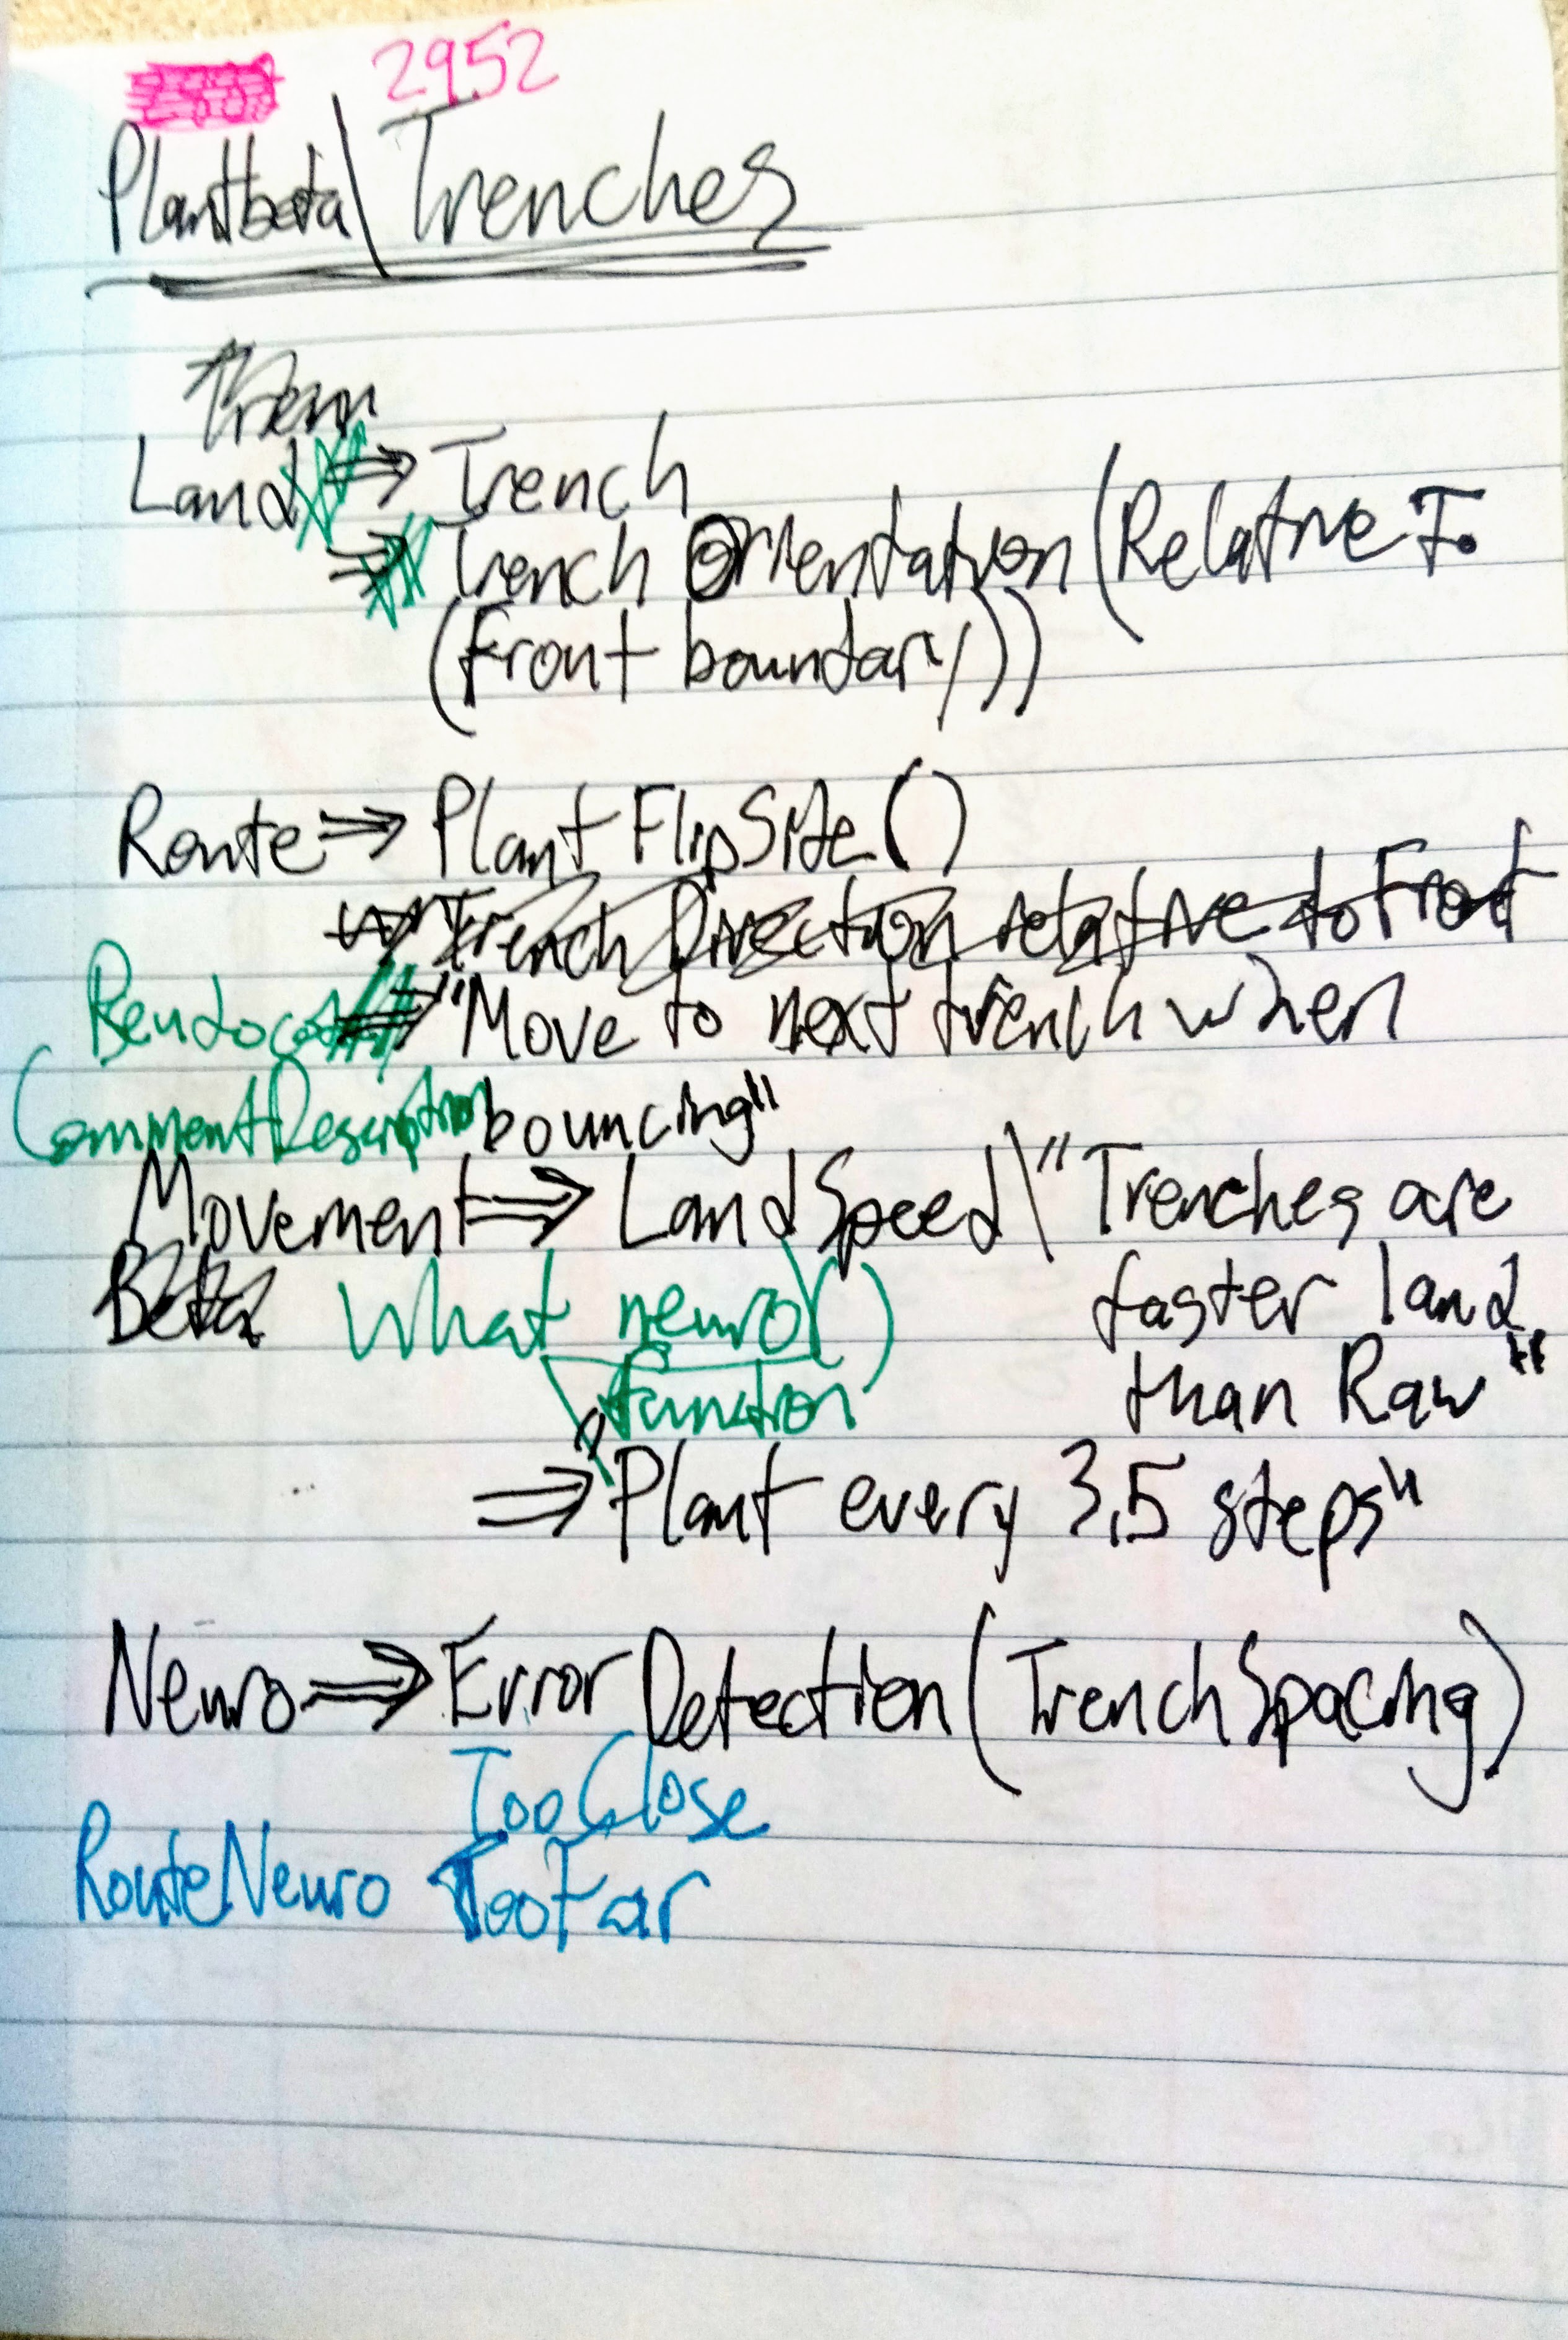 2952
Plantbeta\Trenches
Land ⇒ Trench
⇒ Trench Orientation (Relative To
(Front boundary))
Route ⇒ PlantFlipSite()
Trench Direction relative to Front
⇒ "Move to next trench when
CommentDescription bouncing"
Movement ⇒ LandSpeed\"Trenches are
Beta What neuro() faster land
function than Raw"
⇒ "Plant every 3.5 steps"
Neuro ⇒ Error Detection (TrenchSpacing)
TooClose
RouteNeuro TooFar